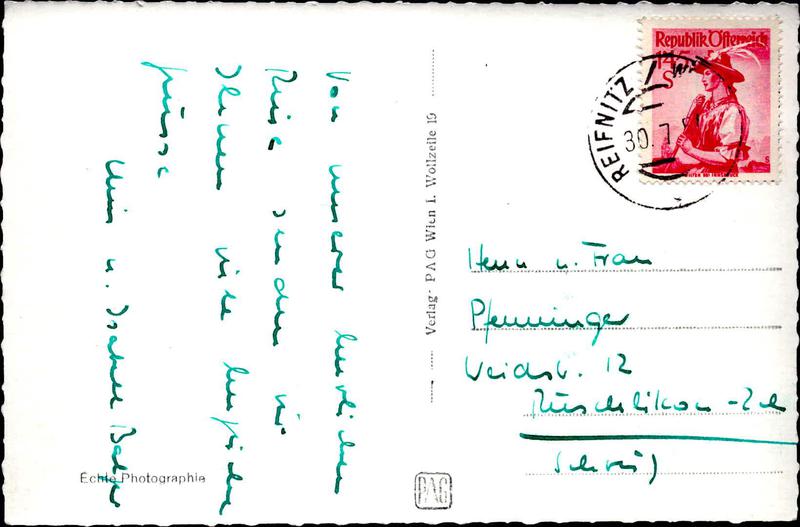 Von unserer herrlichen
Reise senden wir
Ihnen viele herzliche
grüsse
u.
Echte Photographie
Verlag- PAG Wien I. Wollzeile 19
PAG
Republik Österreich
1'45
S
REIFNITZ
30. 7
WILTEN BEI INNSBRUCK
Herrn u. Frau
Pfenninger
Weidstr. 12
Rüschlikon-Zch
(Schweiz)